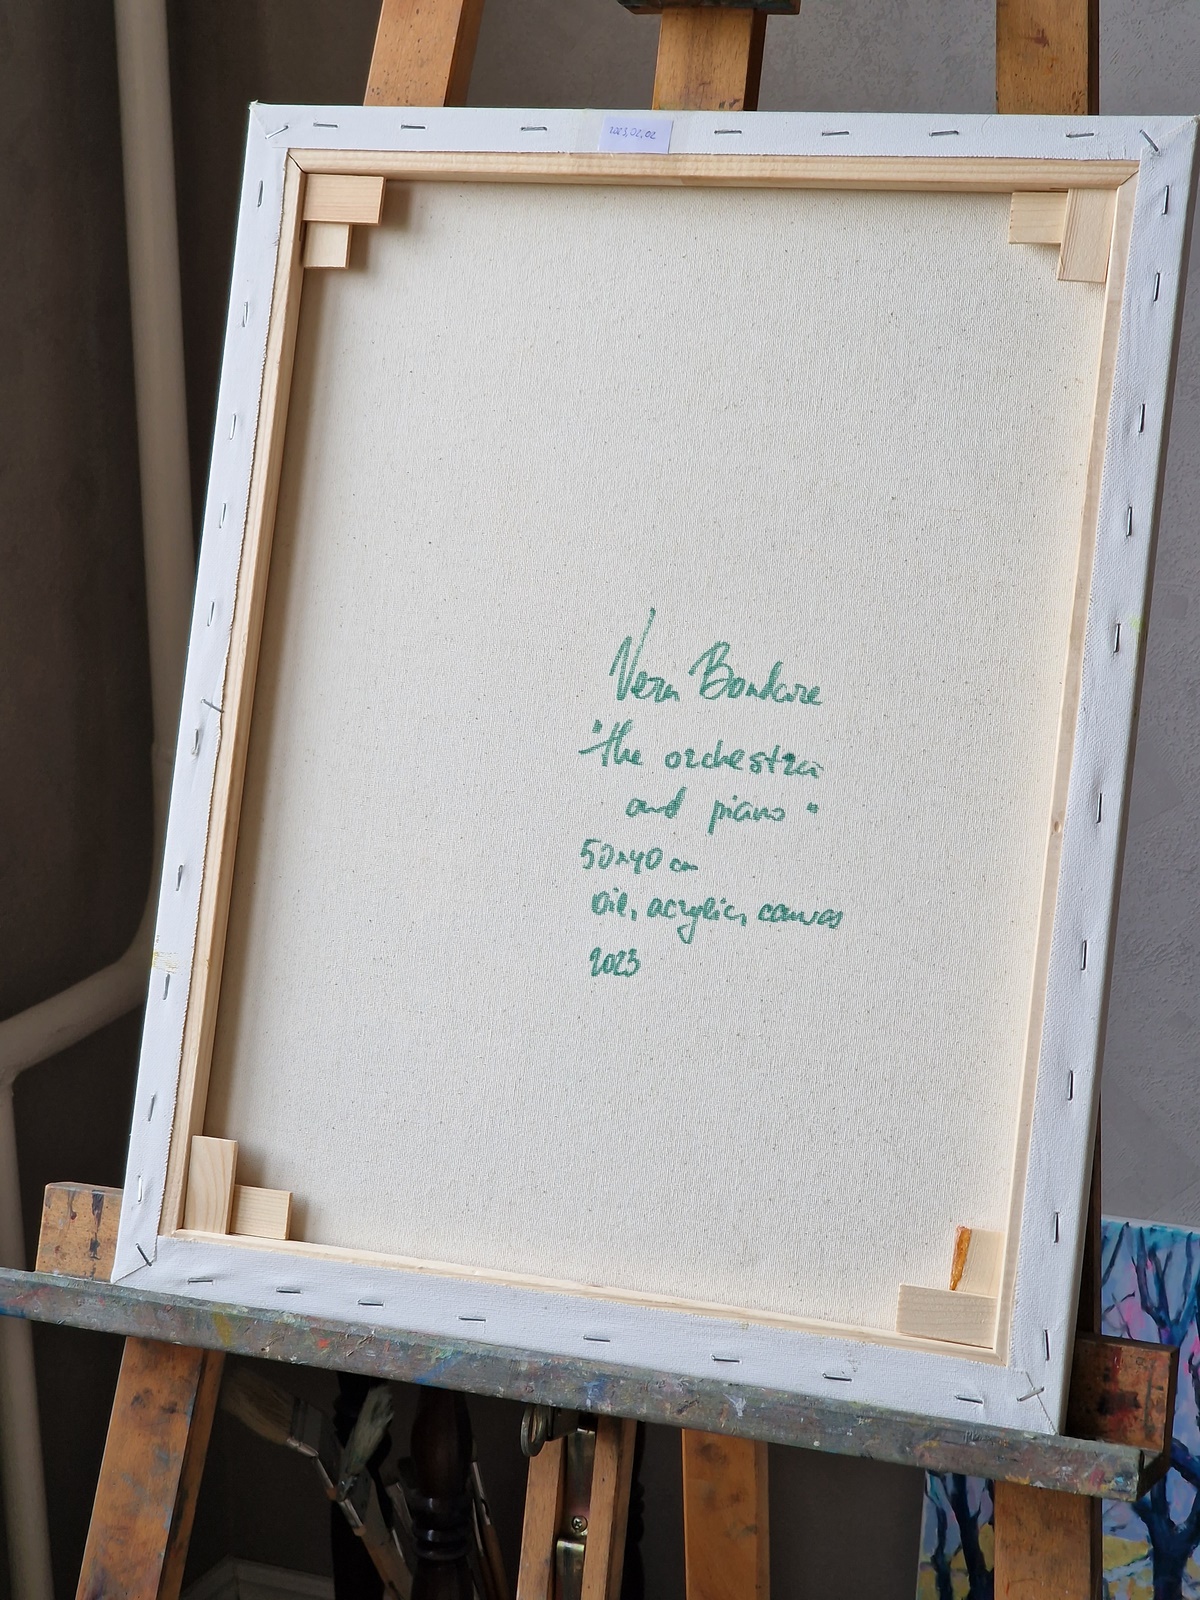 2023,02,02
Vera Bondare
"the orchestra
and piano"
50x40 cm
oil, acrylic, canvas
2023